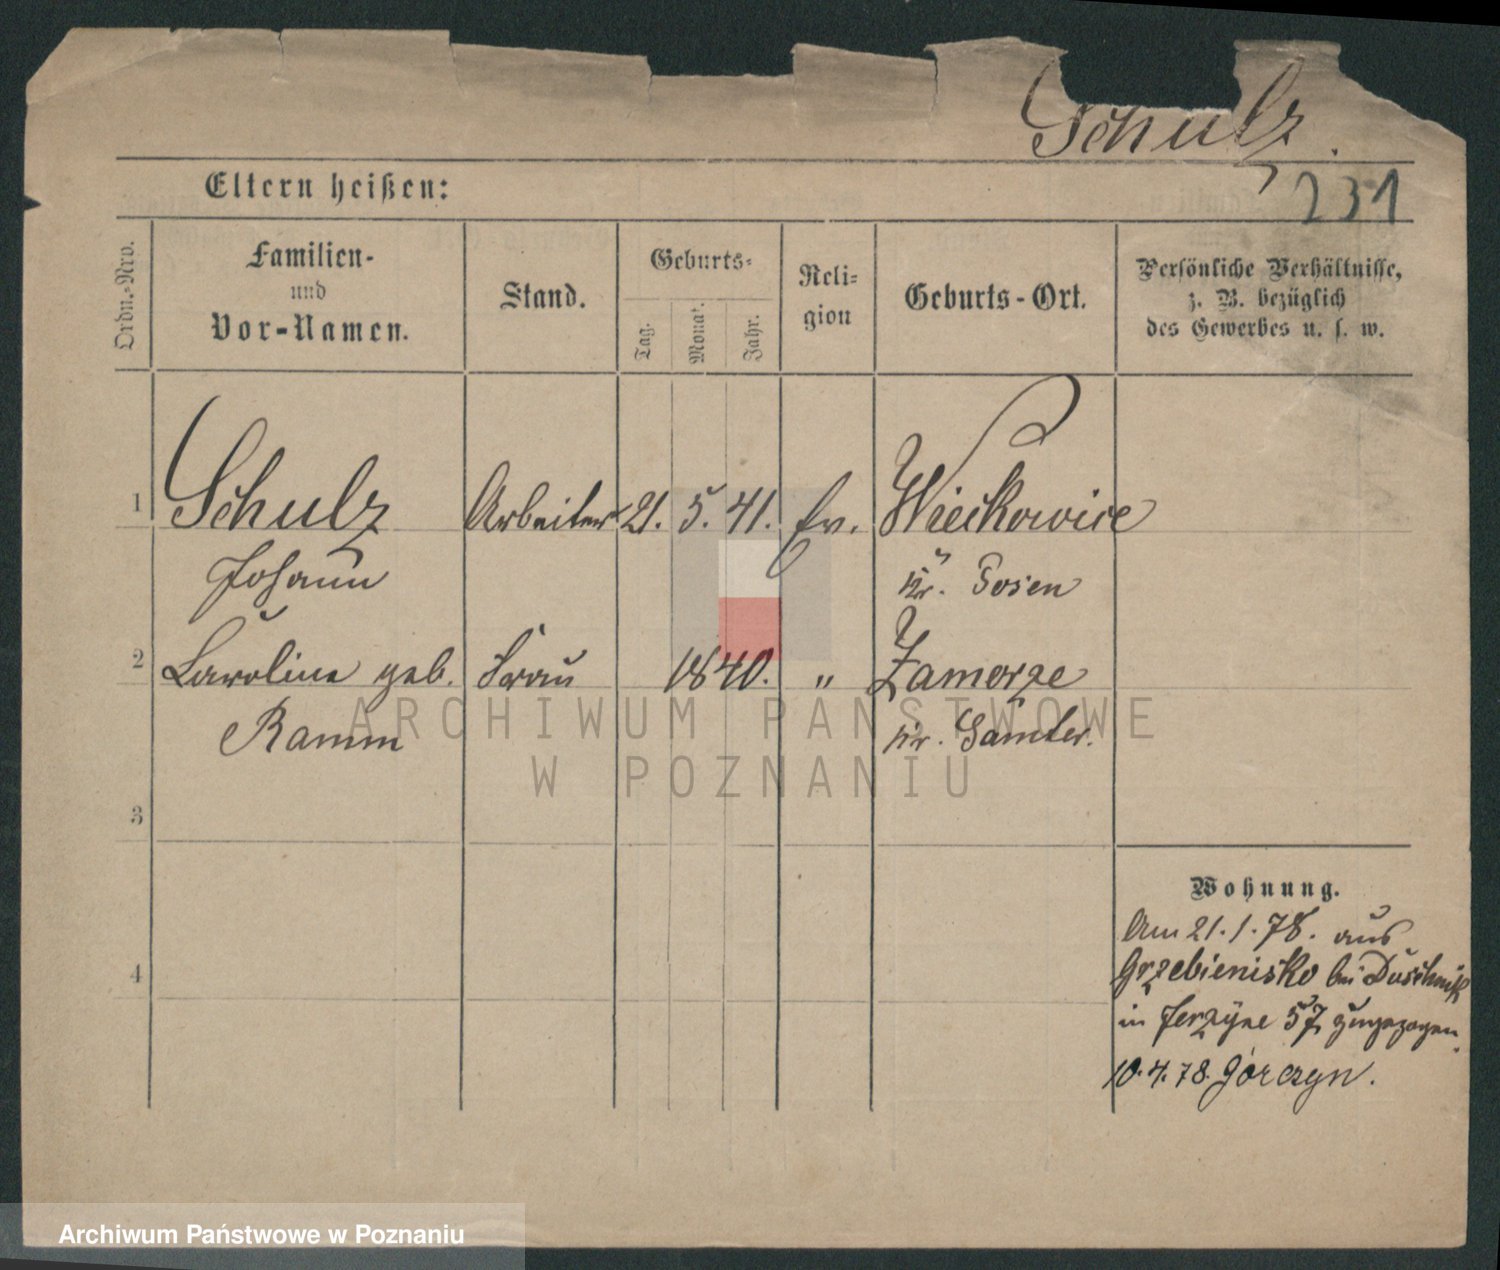 Schulz.
231
Eltern heißen:
Ordn.-Nro.
Familien-
und
Vor-Namen.
Stand.
Geburts-
Tag.
Monat.
Jahr.
Reli-
gion
Geburts-Ort.
Persönliche Verhältnisse,
z. B. bezüglich
des Gewerbes u. s. w.
1 Schulz Arbeiter 21. 5. 41. Ev. Wieckowice
Johann Kr. Posen
2 Caroline geb. Frau 1840. " Zamorze
Ramm Kr. Samter.
3
4
Wohnung.
Am 21.1.78. aus
Grzebienisko bei Duschnik
in Jerzyce 57 zugezogen.
10.4.78. Górczyn.
ARCHIWUM PAŃSTWOWE
W POZNANIU
Archiwum Państwowe w Poznaniu